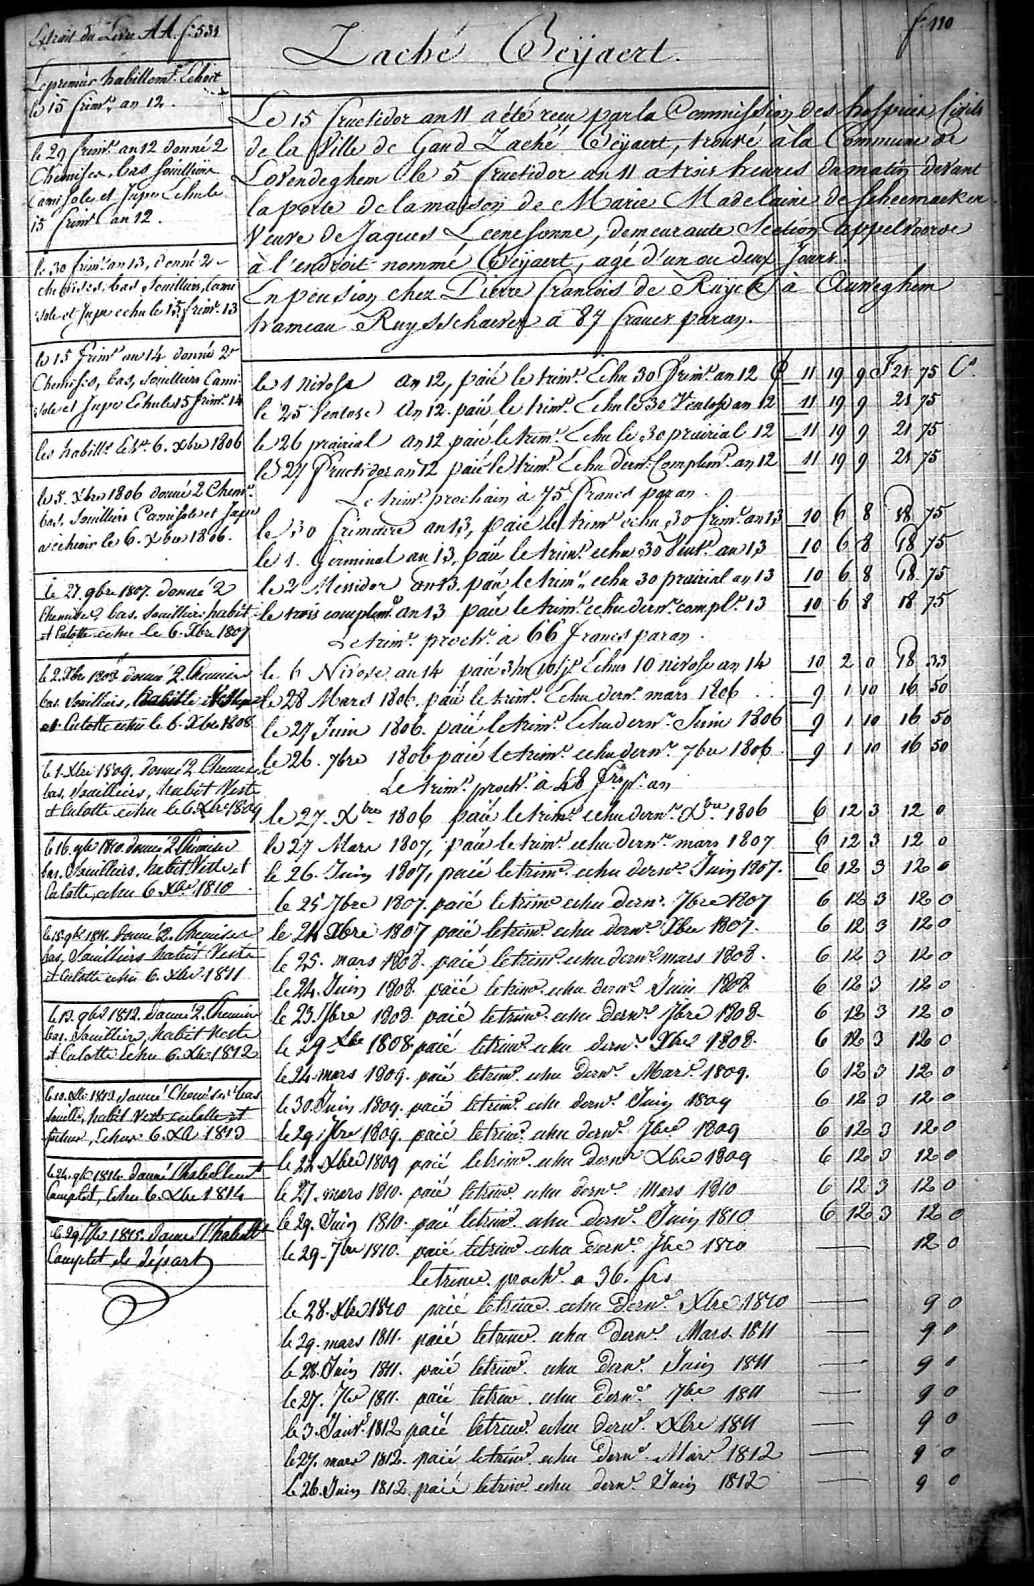 Extrait du Livre AA. f° 531
f° 110
Zaché Beÿaert.
Le premier habillemt. Echoit
le 15 frimre. an 12.
le 29 frimre. an 12 donné 2
Chemises, bas souilliers
Camisoles et Jupe Echu le
15 frimre. an 12.
le 30 frimre. an 13, donné 2
chemises, bas, souilliers, Cami
sole et Jupe echu le 15 frimre. 13
le 15 frimre. an 14 donné 2
Chemises, bas, souilliers Cami
sole et Jupe Echu le 15 frimre. 14
les habillts. 6. xbre 1806
le 5. Xbre 1806 donné 2 Chemes.
bas. souilliers Camisole et Jupe
a echeoir le 6. Xbre 1806.
Le 27. 9bre 1807. donné 2
Chemises, bas, souilliers habit
et Culotte echu le 6. Xbre 1807
le 2. Xbre 1808 donné 2. Chemises
bas souilliers,
et Culotte echu le 6. Xbre 1808
le 1. Xbre 1809. donné 2 Chemises
bas. souilliers, habit Veste
et Culotte echu le 6 Xbre 1809
le 16. 9bre 1810. donné 2 Chemises
bas, souilliers, habit Veste et
Culotte, echu 6. Xbre 1810
le 15. 9bre 1811. donné 2. Chemises
bas, souilliers habit Veste
et Culotte echu 6. Xbre 1811
le 13. 9bre 1812. donné 2. Chemises
bas. souilliers, habit Veste
et Culotte Echu 6. Xbre 1812
le 10. Xbre 1813 donné Chemises bas
souilliers, habit Veste culotte et
Echu 6. Xbre 1813
le 24. 9bre 1814. donné l'habillemt.
Complet, Echu 6. Xbre 1814
le 29 7bre 1815. donné l'habillt.
Complet de départ
Le 15 fructidor an 11 a été recu par la Commission des hospices Civils
de la Ville de Gand Zaché Beÿaert, trouvé à la Commune de
Lovendeghem le 5 fructidor an 11 a trois heures du matin devant
la porte de la maison de Marie Madelaine de Scheemaeker
Veuve de Jaques Leenesonne, demeurante Section Appelvoorde
à l'endroit nommé Beÿaert, agé d'un ou deux Jours.
En pension chez Pierre francois de Ruÿck à Aurveghem
hameau Ruysschaever à 87 francs par an.
le 1 nivose an 12, paié le trimre. Echu 30 frimre. an 12 £ 11 19 9 F 21 75 Cs.
le 25 Ventose an 12 paié le trimre. Echu le 30 Ventose an 12 11 19 9 21 75
le 26 prairial an 12 paié le trimre. Echu le 30 prairial 12 11 19 9 21 75
le 27 fructidor an 12 paié le trimre. Echu dernr. Complimre. an 12 11 19 9 21 75
Le trimre. prochain à 75 francs par an.
le 30 frimaire an 13, paié le trimre. echu 30 frimre. an 13 10 6 8 18 75
le 1. Germinal an 13, paié le trimre. echu 30 Vent. an 13 10 6 8 18 75
le 2 Messidor an 13. paié le trimre. echu 30 prairial an 13 10 6 8 18 75
le trois complemre. an 13 paié le trimre. echu dernr. complre. 13 10 6 8 18 75
Le trimre. prochn. à 66 francs par an.
le 6 Nivose an 14 paié 3m 10 js. Echus 10 nivose an 14 10 2 0 18 33
le 28 Mars 1806. paié le trimre. Echu dernr. mars 1806 9 1 10 16 50
le 27 Juin 1806. paié le trimre. Echu dernr. Juin 1806 9 1 10 16 50
le 26. 7bre 1806 paié le trimre. echu dernr. 7bre 1806 9 1 10 16 50
Le trimre. prochn. à 48 frs. pr. an
le 27. Xbre 1806 paié le trimre. echu dernr. Xbre 1806 6 12 3 12 0
le 27 Mars 1807, paié le trimre. echu dernr. mars 1807 6 12 3 12 0
le 26. Juin 1807, paié le trimre. echu dernr. Juin 1807. 6 12 3 12 0
le 25 7bre 1807. paié le trimre echu dernr. 7bre 1807 6 12 3 12 0
le 24 Xbre 1807 paié le trimre. echu dernr. Xbre 1807. 6 12 3 12 0
le 25. mars 1808. paié le trimre. echu dernr. mars 1808. 6 12 3 12 0
le 24. Juin 1808. paié le trimre. echu dernr. Juin 1808 6 12 3 12 0
le 23. 7bre 1808. paié le trimre. echu dernr. 7bre 1808. 6 12 3 12 0
le 29 Xbre 1808 paié le trimre. echu dernr. Xbre 1808. 6 12 3 12 0
le 24. mars 1809. paié le trimre. echu dernr. Mars. 1809. 6 12 3 12 0
le 30. Juin 1809. paié le trimre. echu dernr. Juin 1809 6 12 3 12 0
le 29 7bre 1809. paié le trimre. echu dernr. 7bre 1809 6 12 3 12 0
le 22. Xbre 1809 paié le trimre. echu dernr Xbre 1809 6 12 3 12 0
le 27. mars 1810. paié le trimre. echu dernr. Mars 1810 6 12 3 12 0
le 29. Juin 1810. paié le trimre. echu dernr. Juin 1810 6 12 3 12 0
le 29. 7bre 1810. paié le trimre. echu dernr. 7bre 1810 12 0
le trimre. prochr. a 36. frs
le 28. Xbre 1810 paié le trimre. echu dernr. Xbre 1810 9 0
le 29. mars 1811. paié le trimre. echu dernr. Mars. 1811 9 0
le 28. Juin 1811. paié le trimre. echu dernr. Juin 1811 9 0
le 27. 7bre 1811. paié le trimre. echu dernr. 7bre 1811 9 0
le 3. Janvr. 1812 paié le trimre. echu dernr. Xbre 1811 9 0
le 27. mars 1812. paié le trimre. echu dernr. Mars 1812 9 0
le 26. Juin 1812. paié le trimre. echu dernr. Juin 1812 9 0